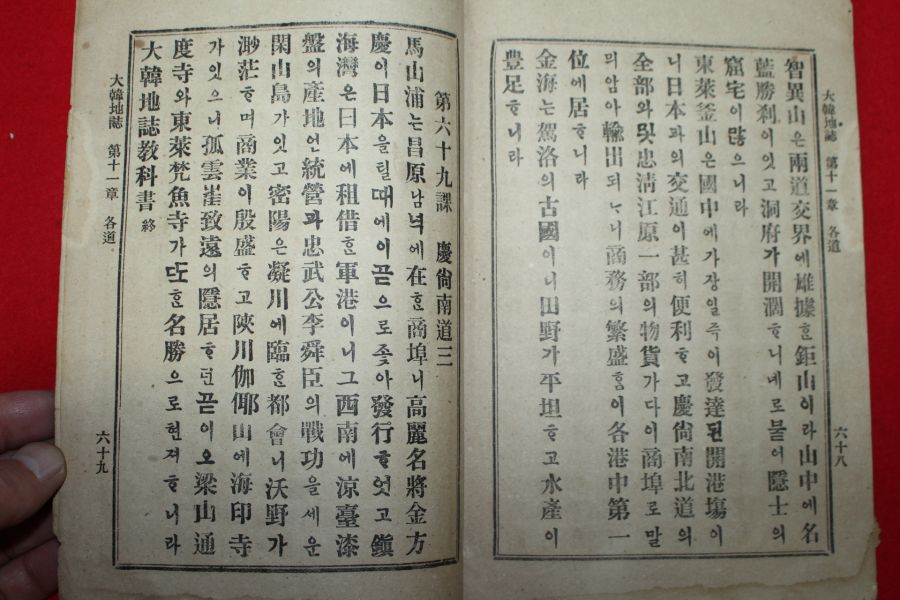 大韓地誌 第十一章 各道 六十八
智異山은兩道交界에雄據ᄒᆞᆫ鉅山이라山中에名
藍勝刹이잇고洞府가開濶ᄒᆞ니네로붙어隱士의
窟宅이많으니라
東萊釜山은國中에가장일즉이發達된開港塲이
니日本과의交通이甚히便利ᄒᆞ고慶尙南北道의
全部와및忠淸江原一部의物貨가다이商埠로말
믜암아輸出되ᄂᆞ니商務의繁盛ᄒᆞᆷ이各港中第一
位에居ᄒᆞ니라
金海는駕洛의古國이니田野가平坦ᄒᆞ고水產이
豊足ᄒᆞ니라
第六十九課 慶尙南道三
馬山浦는昌原남녁에在ᄒᆞᆫ商埠니高麗名將金方
慶이日本을틸때에이곧으로좇아發行ᄒᆞ엿고鎭
海灣은日本에租借ᄒᆞᆫ軍港이니그西南에涼臺漆
盤의產地언統營과忠武公李舜臣의戰功을세운
閑山島가잇고密陽은凝川에臨ᄒᆞᆫ都會니沃野가
渺茫ᄒᆞ며商業이殷盛ᄒᆞ고陜川伽倻山에海印寺
가잇으니孤雲崔致遠의隱居ᄒᆞ던곧이오梁山通
度寺와東萊梵魚寺가또ᄒᆞᆫ名勝으로헌져ᄒᆞ니라
大韓地誌敎科書 終
大韓地誌 第十一章 各道 六十九